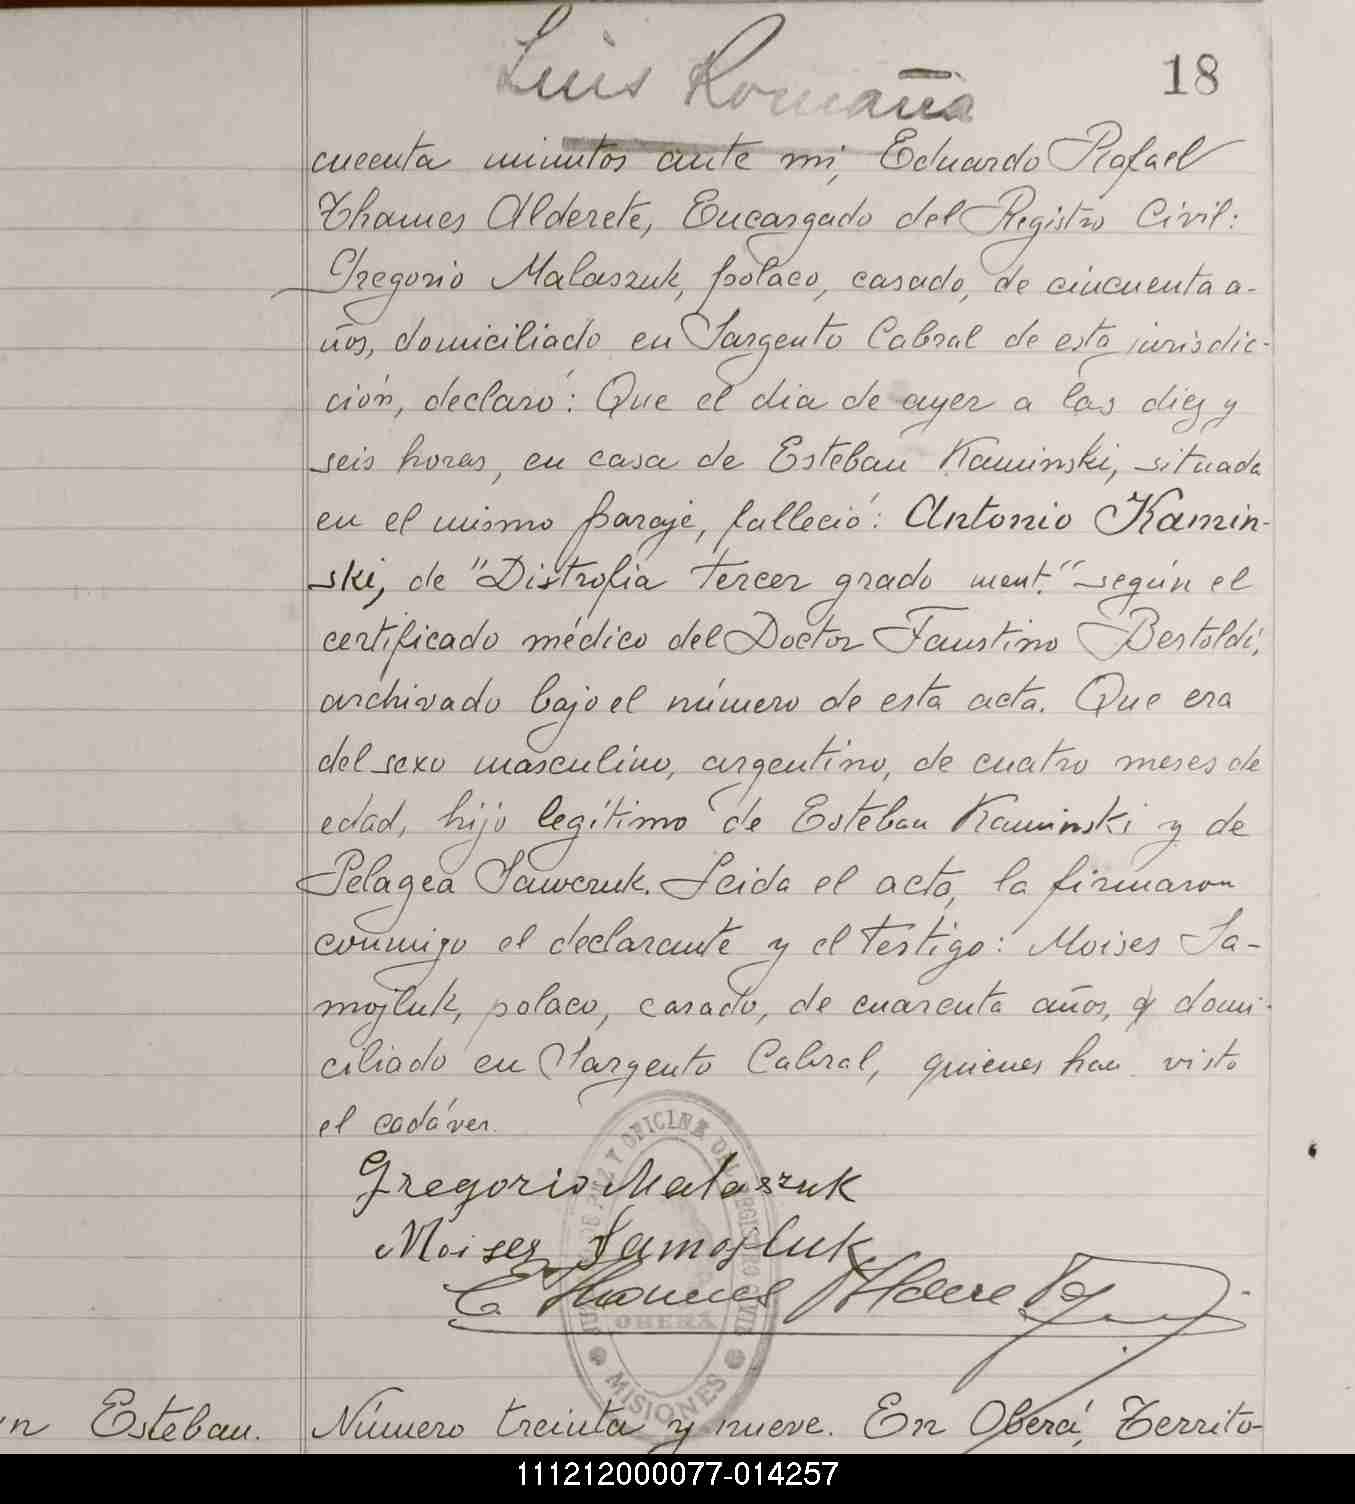 Luis Romaña
18
cuenta minutos ante mi, Eduardo Rafael
Thames Alderete, Encargado del Registro Civil:
Gregorio Malaszuk, polaco, casado, de cincuenta a-
ños, domiciliado en Sargento Cabral de esta jurisdic-
ción, declaró: Que el dia de ayer a las diez y
seis horas, en casa de Esteban Kaminski, situada
en el mismo paraje, falleció: Antonio Kamin-
ski, de "Distrofia tercer grado ment." según el
certificado médico del Doctor Faustino Bertoldi,
archivado bajo el número de esta acta. Que era
del sexo masculino, argentino, de cuatro meses de
edad, hijo legítimo de Esteban Kaminski y de
Pelagea Sawczuk. Leida el acta, la firmaron
conmigo el declarante y el testigo: Moises Sa-
mojluk, polaco, casado, de cuarenta años, y domi-
ciliado en Sargento Cabral, quienes han visto
el cadáver.
Gregorio Malaszuk
Moises Samojluk
E Thames Alderete
DE PAZ Y OFICINA DEL REGISTRO CIVIL
OBERA
MISIONES
n Esteban. Número treinta y nueve. En Oberá, Territo-
111212000077-014257